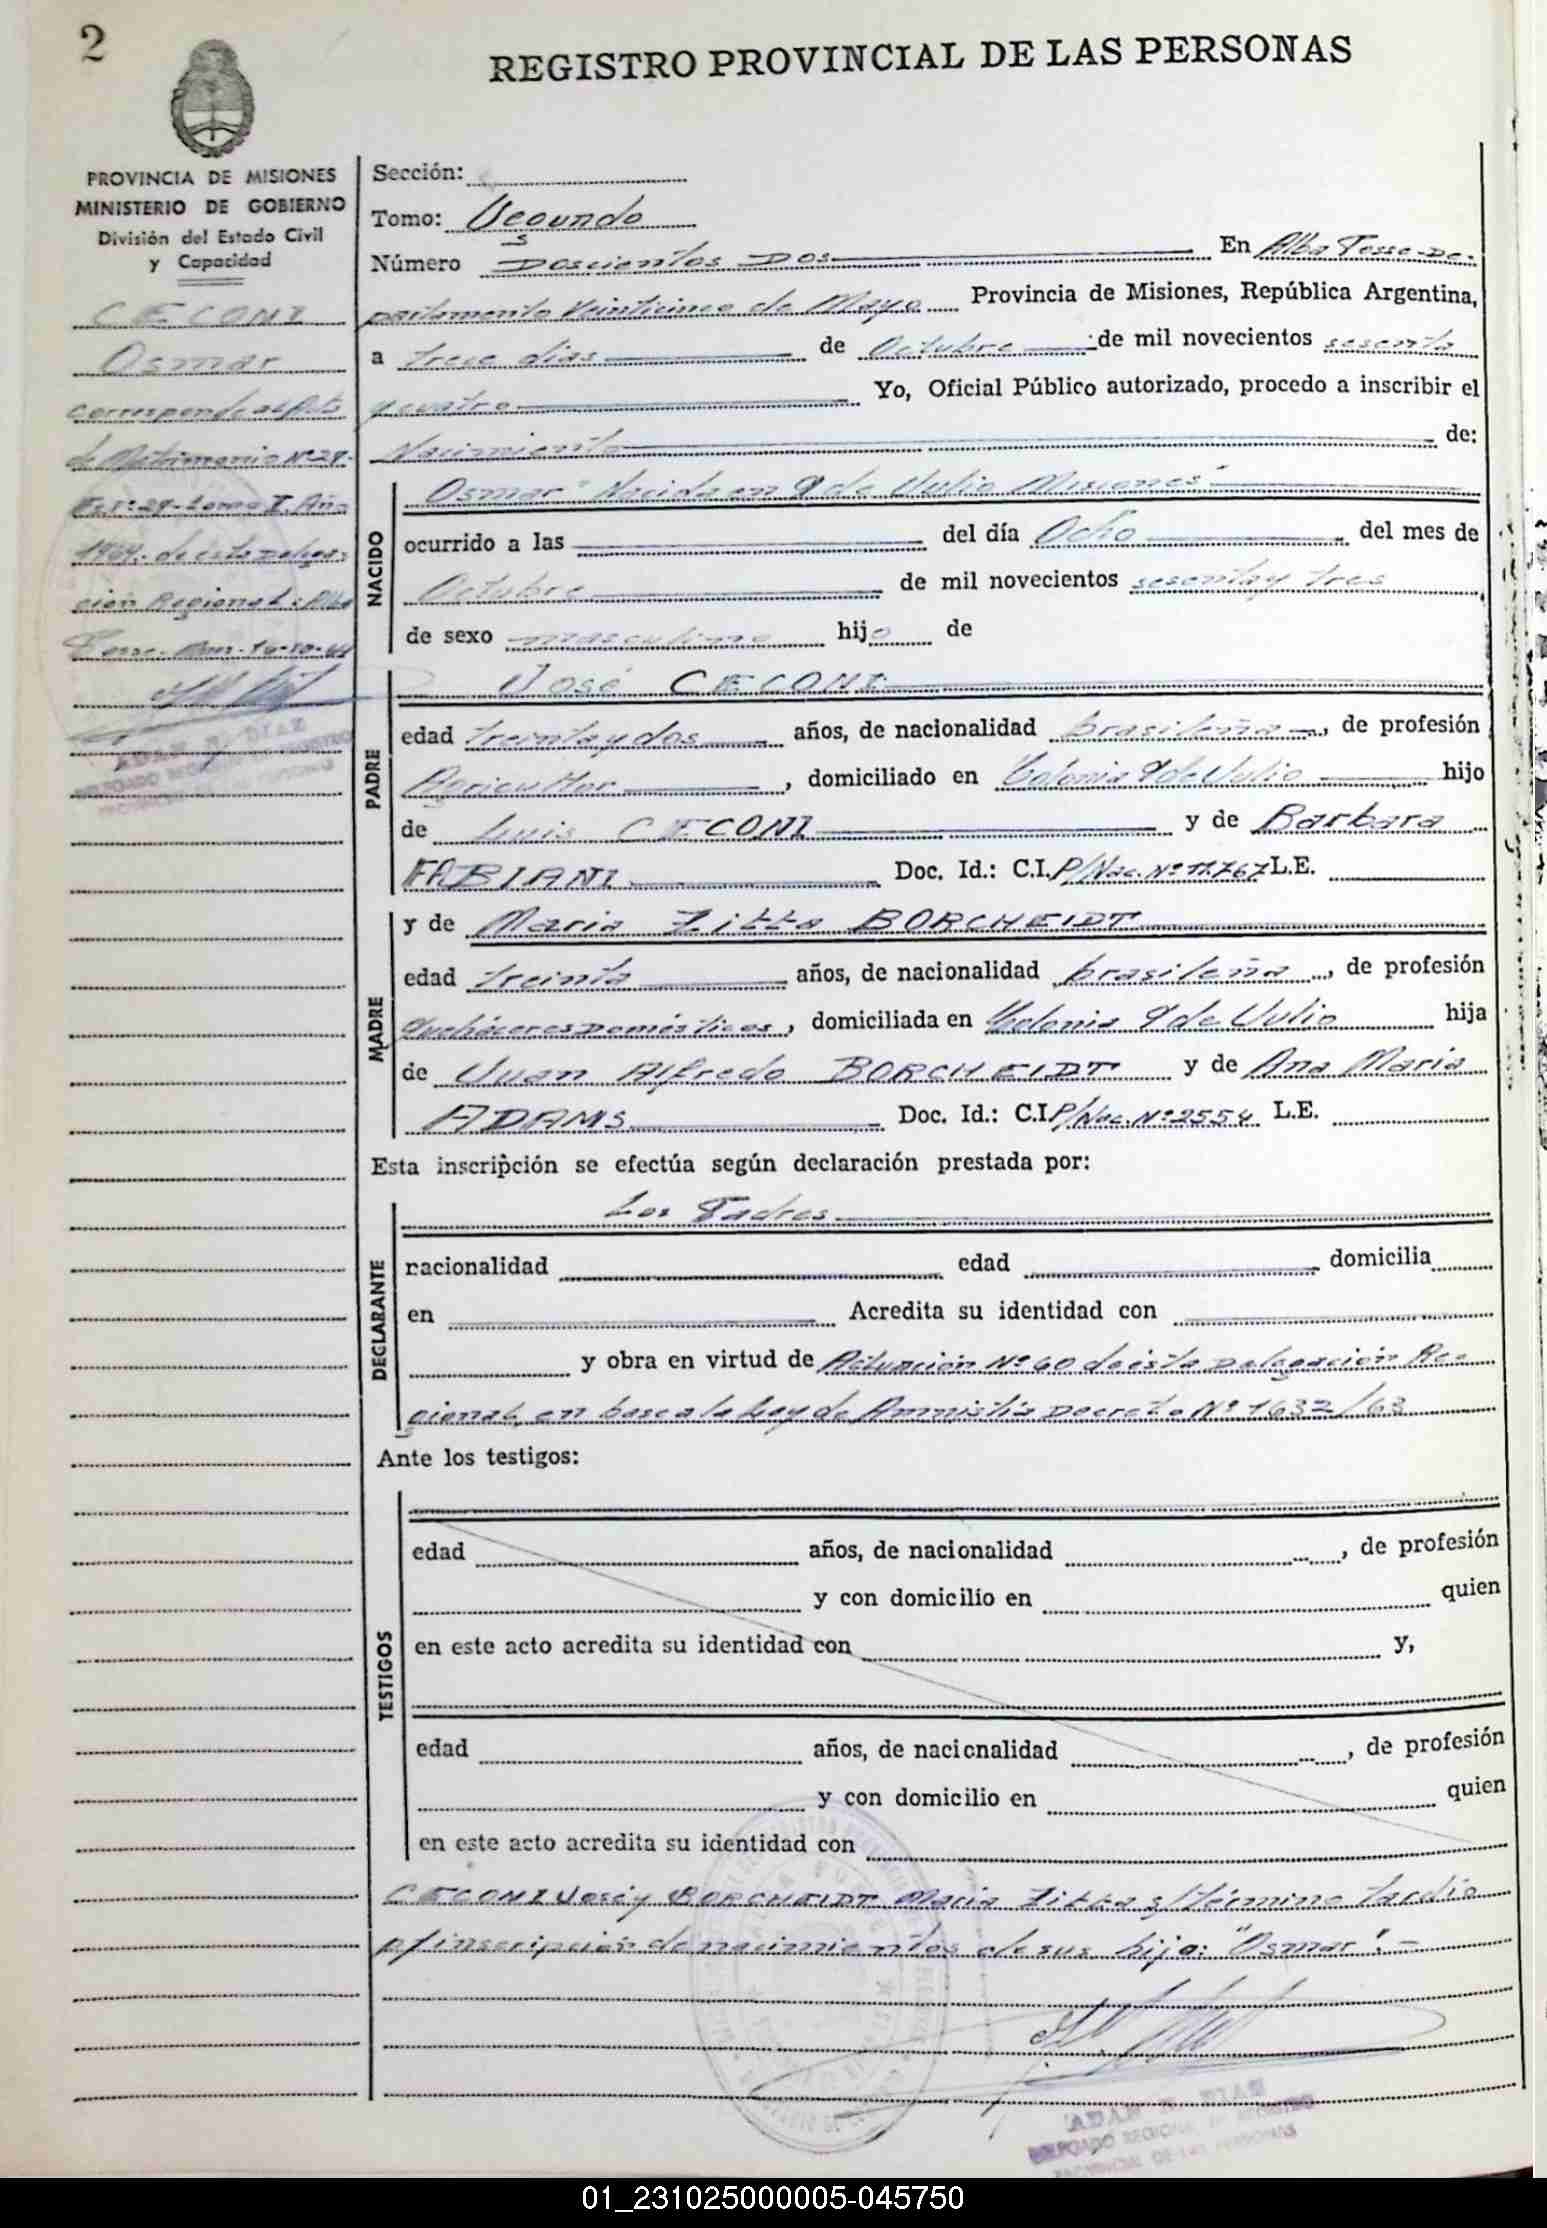 2
REGISTRO PROVINCIAL DE LAS PERSONAS
PROVINCIA DE MISIONES
MINISTERIO DE GOBIERNO
División del Estado Civil
y Capacidad
CECONI
Osmar
corresponde al Acta
de Matrimonio Nº 28-
Fs. Nº 29-tomo I. Año
1964. de esta Delega-
ción Regional: Alba
Posse.
ADAN DIAZ
Sección:
Tomo: Segundo
Número Doscientos Dos En Alba Posse-De-
partamento Veinticinco de Mayo Provincia de Misiones, República Argentina,
a trece dias de Octubre de mil novecientos sesenta
y cuatro Yo, Oficial Público autorizado, procedo a inscribir el
Nacimiento de:
NACIDO
Osmar" Nacida en 9 de Julio Misiones
ocurrido a las del día Ocho del mes de
Octubre de mil novecientos sesenta y tres
de sexo masculino hijo de
PADRE
José CECONI
edad treinta y dos años, de nacionalidad brasileña, de profesión
Agricultor, domiciliado en Colonia 9 de Julio hijo
de Luis CECONI y de Barbara
FABIANI Doc. Id.: C.I. P/Nac. Nº 11.767 L.E.
MADRE
y de Maria Zitta BORCHEIDT
edad treinta años, de nacionalidad brasileña, de profesión
Quehaceres Domésticos, domiciliada en Colonia 9 de Julio hija
de Juan Alfredo BORCHEIDT y de Ana Maria
ADAMS Doc. Id.: C.I. P/Nac. Nº 2554 L.E.
Esta inscripción se efectúa según declaración prestada por:
DECLARANTE
Los Padres
nacionalidad edad domicilia
en Acredita su identidad con
y obra en virtud de Actuación Nº 60 de ésta Delegación Re-
gional, en base a la Ley de Amnistía Decreto Nº 1632/63
Ante los testigos:
TESTIGOS
edad años, de nacionalidad , de profesión
y con domicilio en quien
en este acto acredita su identidad con y,
edad años, de nacionalidad , de profesión
y con domicilio en quien
en este acto acredita su identidad con
CECONI José y BORCHEIDT Maria Zitta s/término tardío
p/inscripción de nacimientos de sus hijo: "Osmar".-
ADAN DIAZ
DELEGADO REGIONAL DE REGISTRO
PROVINCIAL DE LAS PERSONAS
01_231025000005-045750